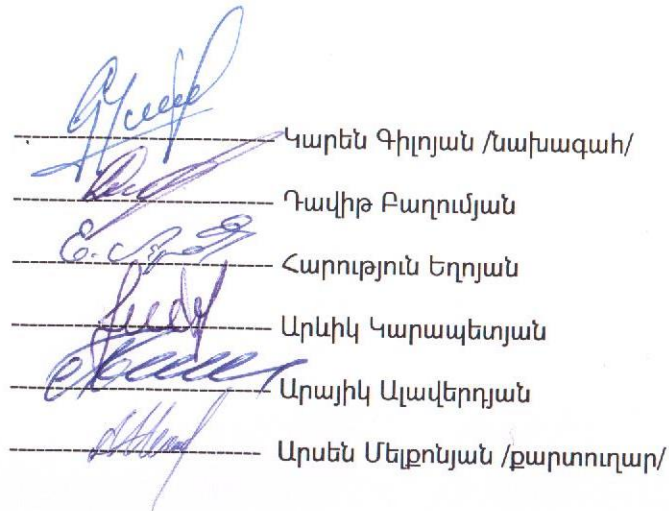 Կարեն Գիլոյան /նախագահ/
Դավիթ Բաղումյան
Հարություն Եղոյան
Արևիկ Կարապետյան
Արայիկ Ալավերդյան
Արսեն Մելքոնյան /քարտուղար/